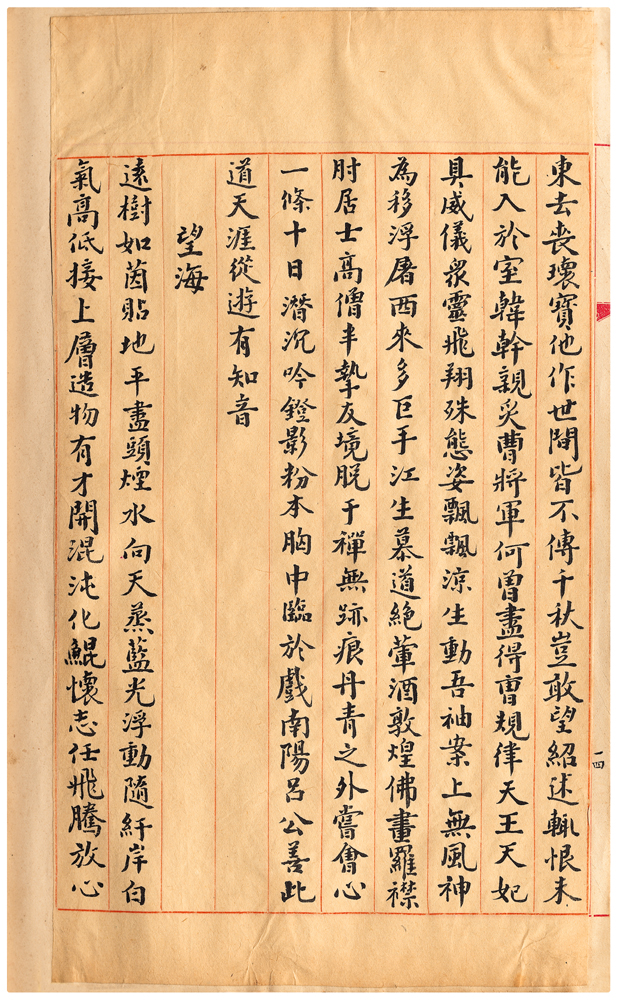 東去喪壞寶他作世間皆不傳千秋豈敢望紹述輒恨未
能入於室韓幹親炙曹將軍何曾盡得曹規律天王天妃
具威儀衆靈飛翔殊態姿飄飄涼生動吾袖案上無風神
為移浮屠西來多巨手江生慕道絕葷酒敦煌佛畫羅襟
肘居士高僧半摯友境脫于禪無跡痕丹青之外嘗會心
一條十日潛沉吟鐙影粉本胸中臨於戲南陽呂公善此
道天涯從遊有知音
望海
遠樹如茵貼地平盡頭煙水向天蒸藍光浮動隨紆岸白
氣高低接上層造物有才開混沌化鯤懷志任飛騰放心
一四